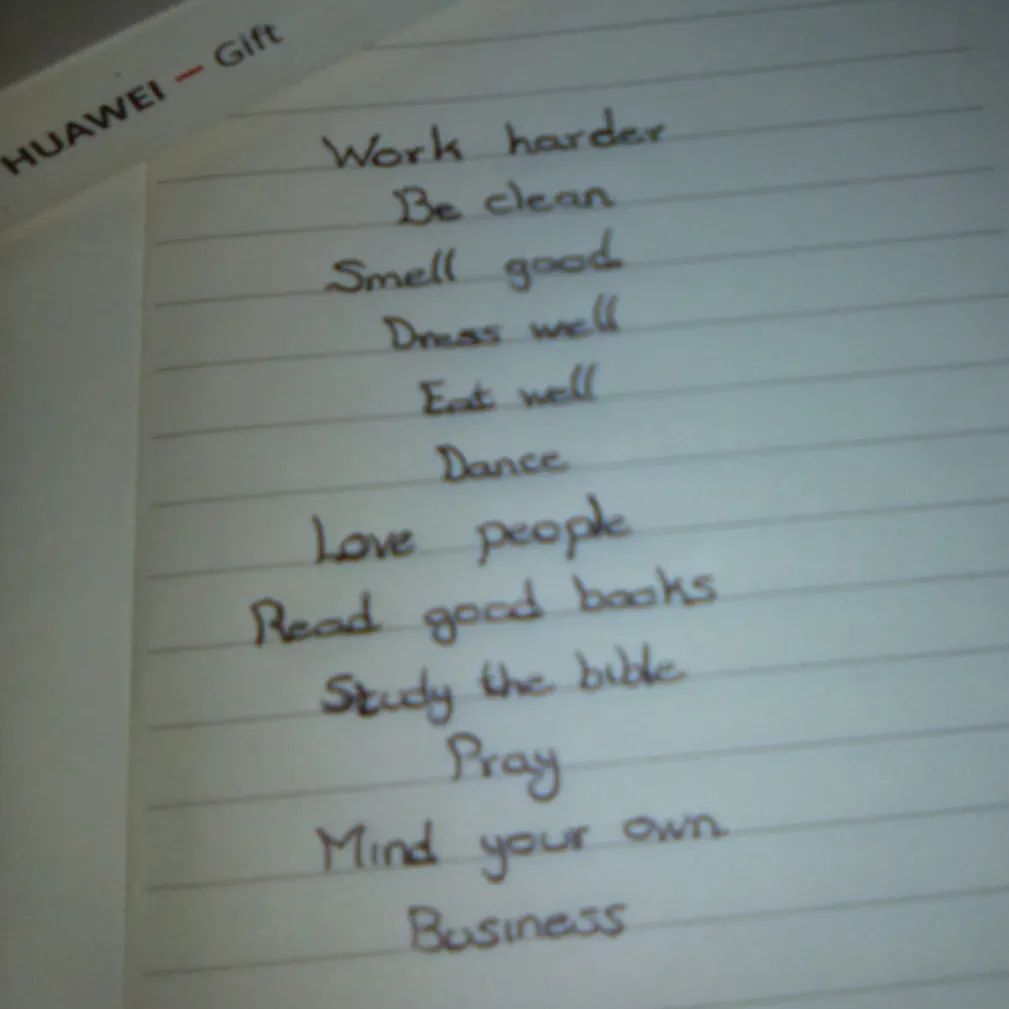 HUAWEI — Gift
Work harder
Be clean
Smell good
Dress well
Eat well
Dance
Love people
Read good books
Study the bible
Pray
Mind your own
Business